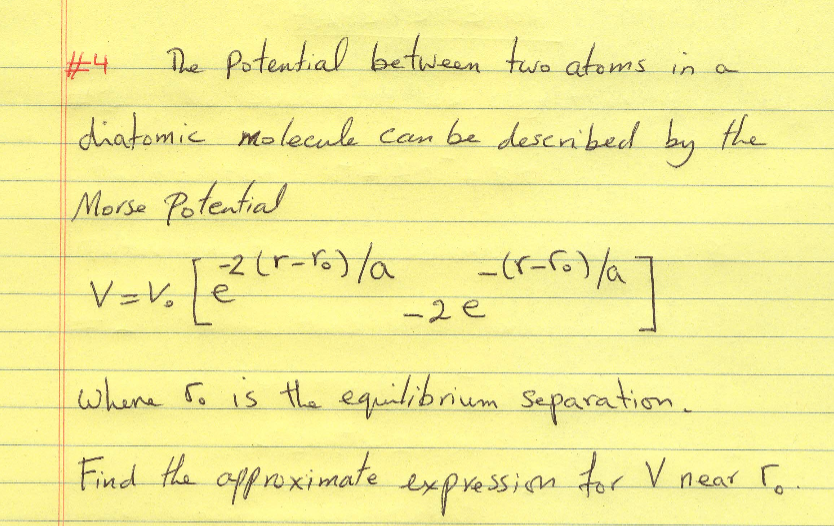 #4 The Potential between two atoms in a
diatomic molecule can be described by the
Morse Potential
V = V₀ [e^{-2(r-r₀)/a} - 2e^{-(r-r₀)/a}]
where r₀ is the equilibrium separation.
Find the approximate expression for V near r₀.